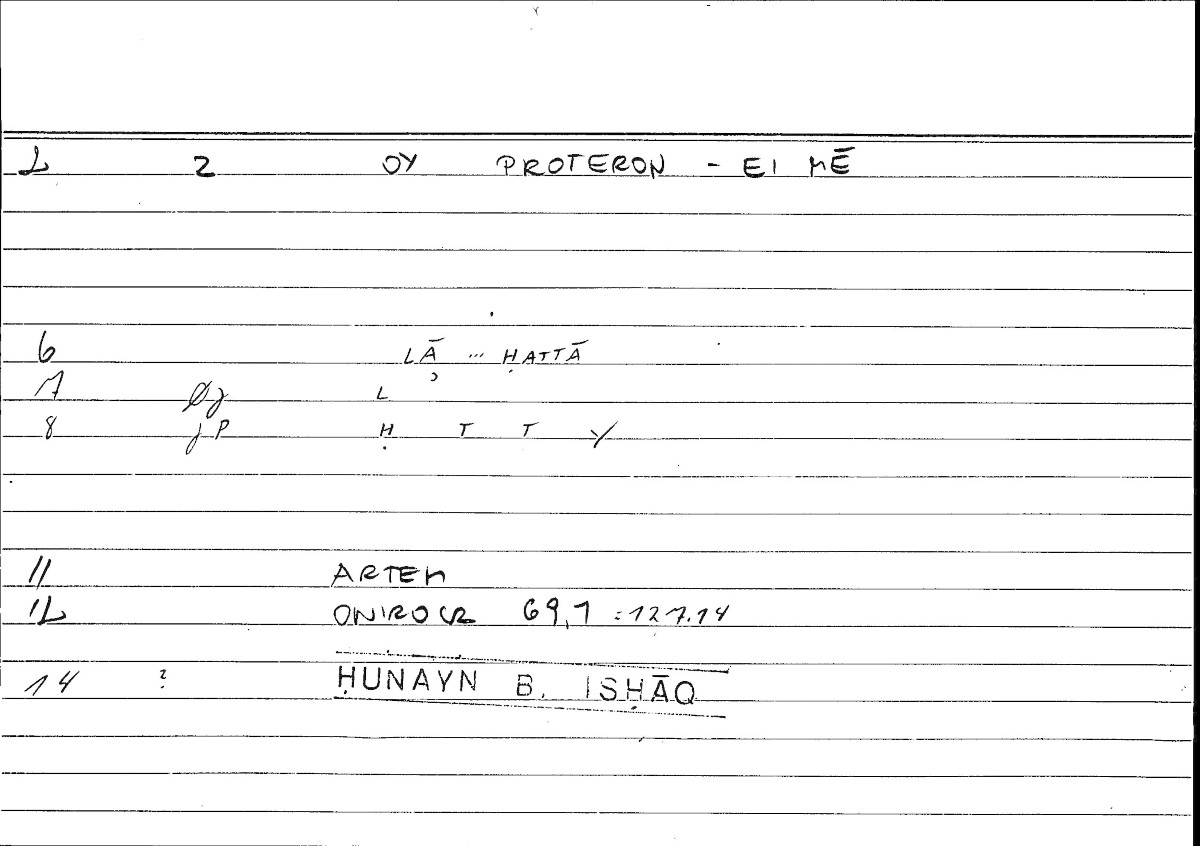 2 2 OY PROTERON - EI MĒ
6 LĀ ... ḤATTĀ
7 Øj L
8 jP Ḥ T T Y
11 ARTEM
12 ONIROCR 69,1 = 127.14
14 ? ḤUNAYN B. ISḤĀQ